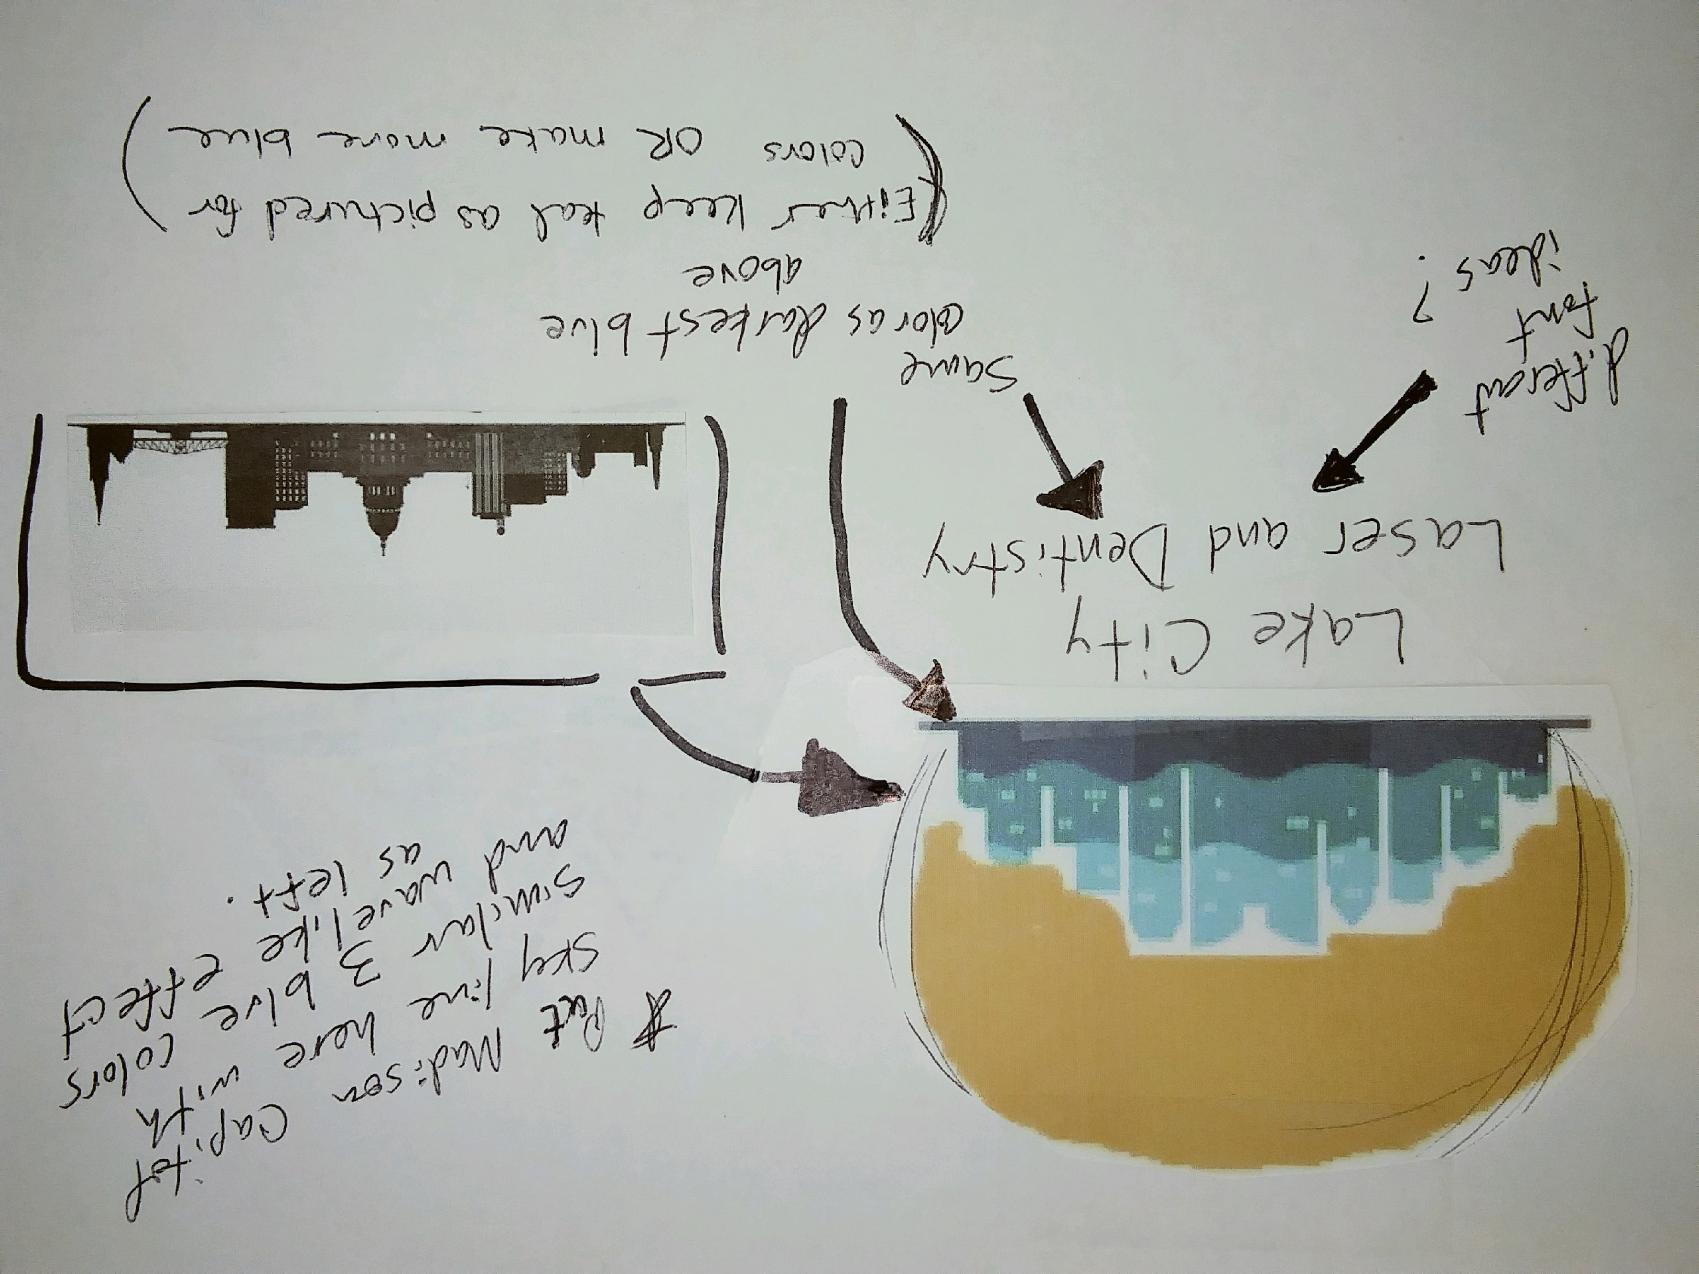 * Put Madison Capitol
sky line here with
similar 3 blue colors
and wavelike effect
as left.
Lake City
Laser and Dentistry
different
font
ideas?
Same
color as darkest blue
above
(Either keep teal as pictured for
colors OR make more blue)